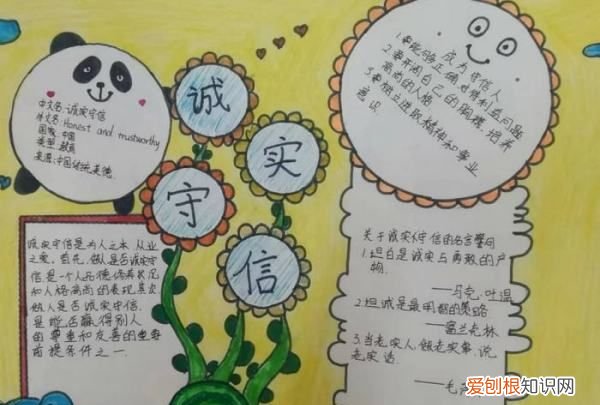 中文名:诚实守信
外文名:Honest and trustworthy
国家:中国
类型:教育
来源:中国传统美德
诚
实
守
信
成为守信人
1.要能够正确对待利益问题
2.要开阔自己的胸襟,培养
高尚的人格
3.要树立进取精神和事业
意识
诚实守信是为人之本,从业
之要。首先,做人是否诚实守
信,是一个人品德修养状况
和人格高尚的表现,其次
做人是否诚实守信,
是能否赢得别人
的尊重和友善的重要
前提条件之一.
关于诚实守信的名言警句
1.坦白是诚实与勇敢的产
物.
——马克·吐温
2.坦诚是最明智的策略
——富兰克林
3.当老实人,做老实事,说
老实话.
爱刨根知识网
www.baogenzhishi.com